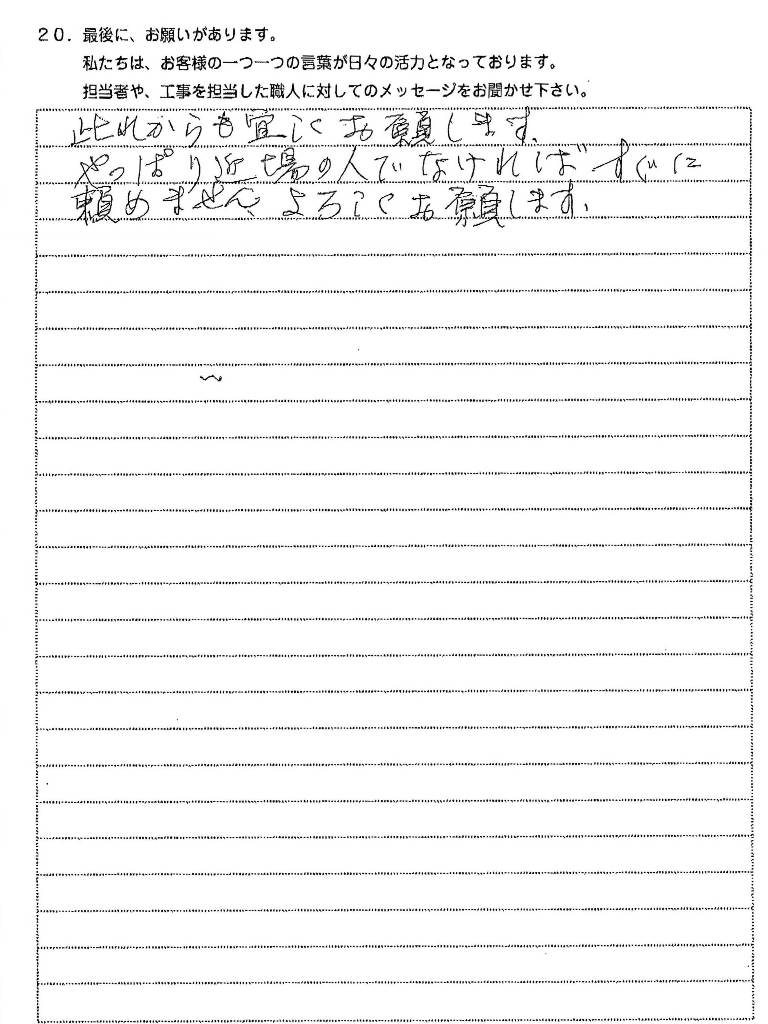 20．最後に、お願いがあります。
私たちは、お客様の一つ一つの言葉が日々の活力となっております。
担当者や、工事を担当した職人に対してのメッセージをお聞かせ下さい。
此れからも宜しくお願します。
やっぱり近場の人でなければすぐに
頼めません、よろしくお願します。